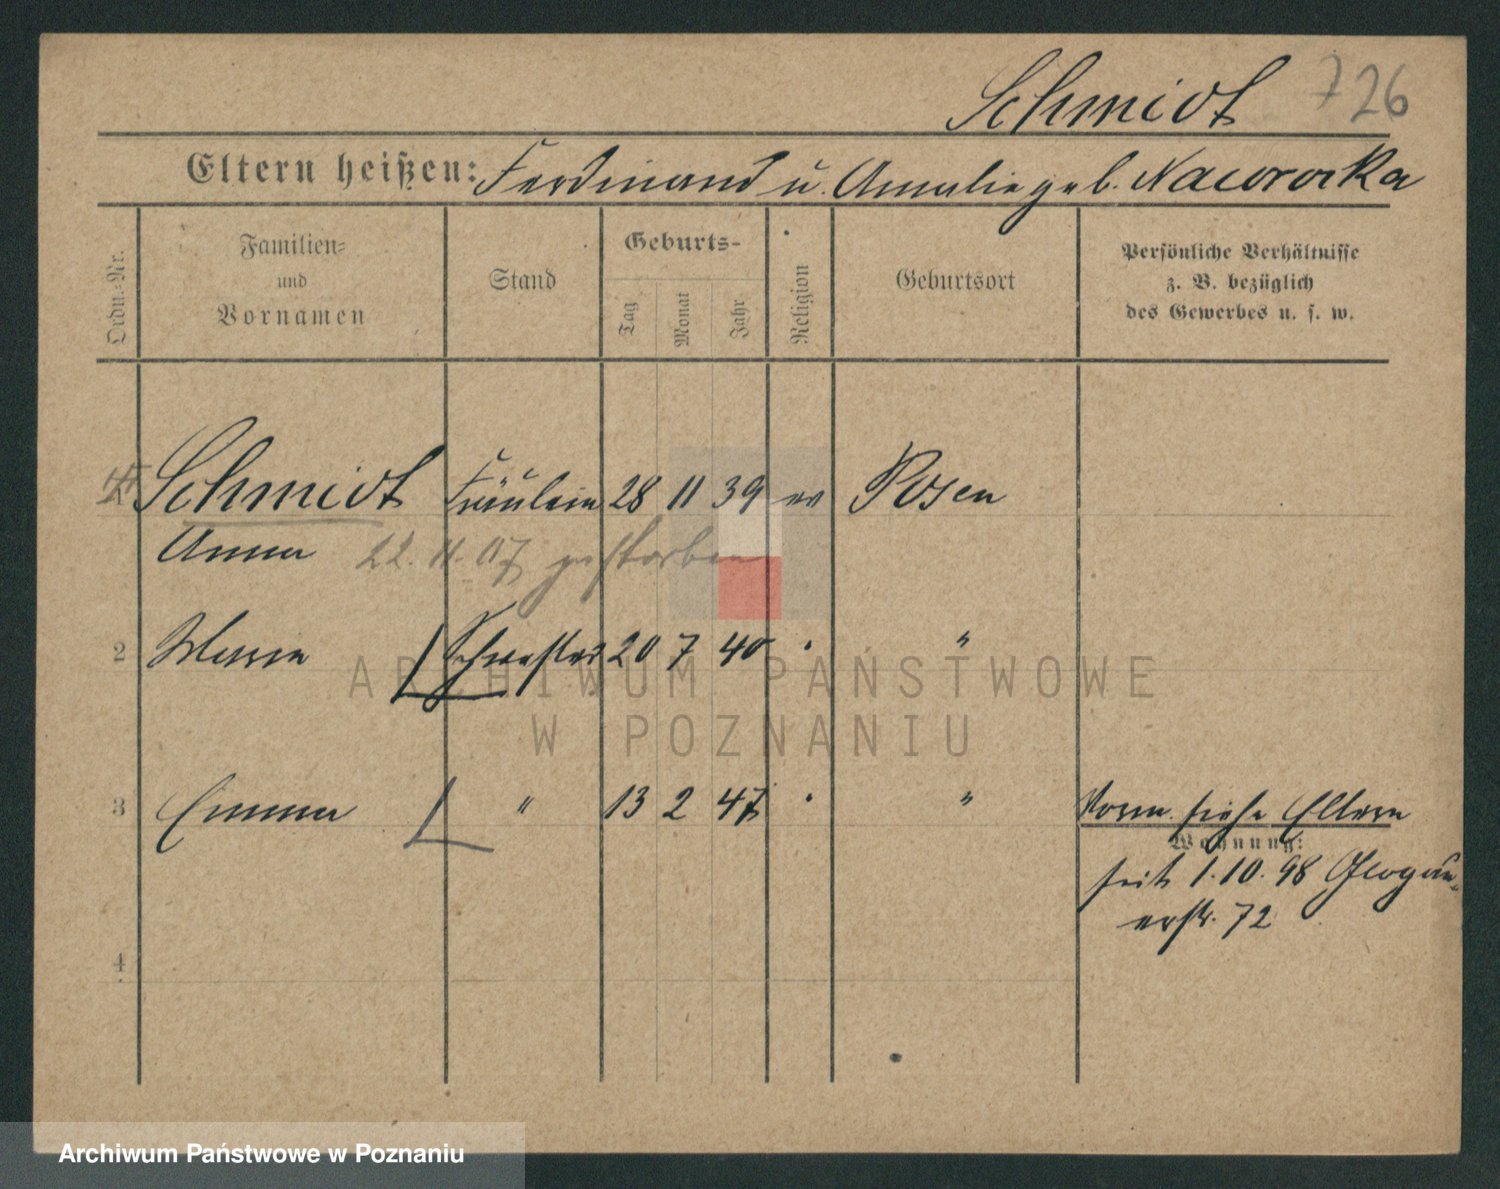 Schmidt 726
Eltern heißen: Ferdinand u. Amalie geb. Nawrocka
Ordn.-Nr.
Familien-
und
Vornamen
Stand
Geburts-
Tag
Monat
Jahr
Religion
Geburtsort
Persönliche Verhältnisse
z. B. bezüglich
des Gewerbes u. s. w.
1 Schmidt Fräulein 28 11 39 ev Posen
Anna 22. 11. 07 gestorben
2 Maria Schwester 20 7 40 " "
ARCHIWUM PAŃSTWOWE
W POZNANIU
3 Emma " 13 2 47 " " Vorm. siehe Eltern
Wohnung:
seit 1.10.98 Glogau-
erstr. 72
4
Archiwum Państwowe w Poznaniu